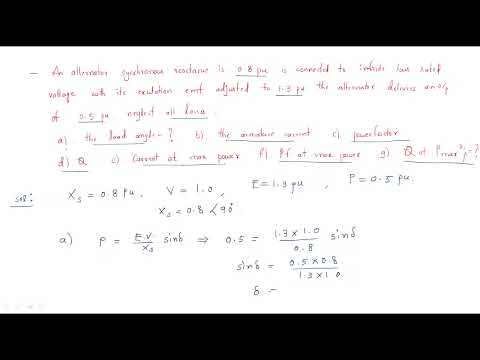 – An alternator synchronous reactance is 0.8 pu is connected to infinite bus rated
voltage with its excitation emf adjusted to 1.3 pu the alternator delivers an o/p
of 0.5 pu. neglect all loss.
a) the load angle - ? b) the armature current c) powerfactor
d) Q e) Current at max power f) Pf at max power g) Q at Pmax - ?
Sol: Xs = 0.8 Pu, V = 1.0, E = 1.3 pu, P = 0.5 pu.
Xs = 0.8 ∠90°
a) P = E.V / Xs sinδ ⇒ 0.5 = 1.3 × 1.0 / 0.8 sinδ
sinδ = 0.5 × 0.8 / 1.3 × 1.0
δ =